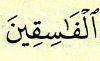 ٱلْفَٰسِقِينَ